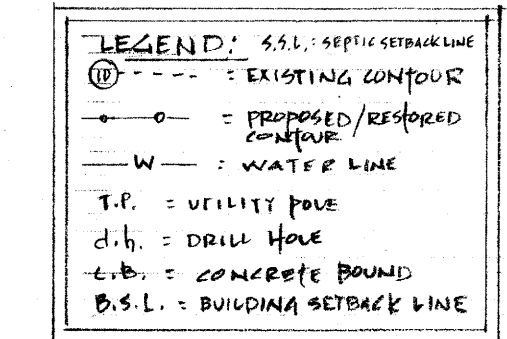 LEGEND: S.S.L.: SEPTIC SETBACK LINE
10 - - - - : EXISTING CONTOUR
= PROPOSED/RESTORED
CONTOUR
—W— : WATER LINE
T.P. = UTILITY POLE
d.h. = DRILL HOLE
C.B. = CONCRETE BOUND
B.S.L. = BUILDING SETBACK LINE